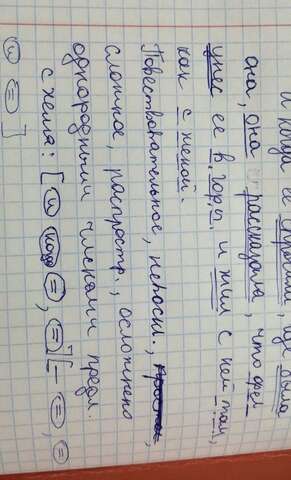 и когда её спросили, где была
она, она рассказала, что орел
унес ее в горы и жил с ней там,
как с женой.
Повествовательное, невоскл.,
сложное, распростр., осложнено
однородными членами предл.
схема: [и когда =, =] - =, =
и = ]